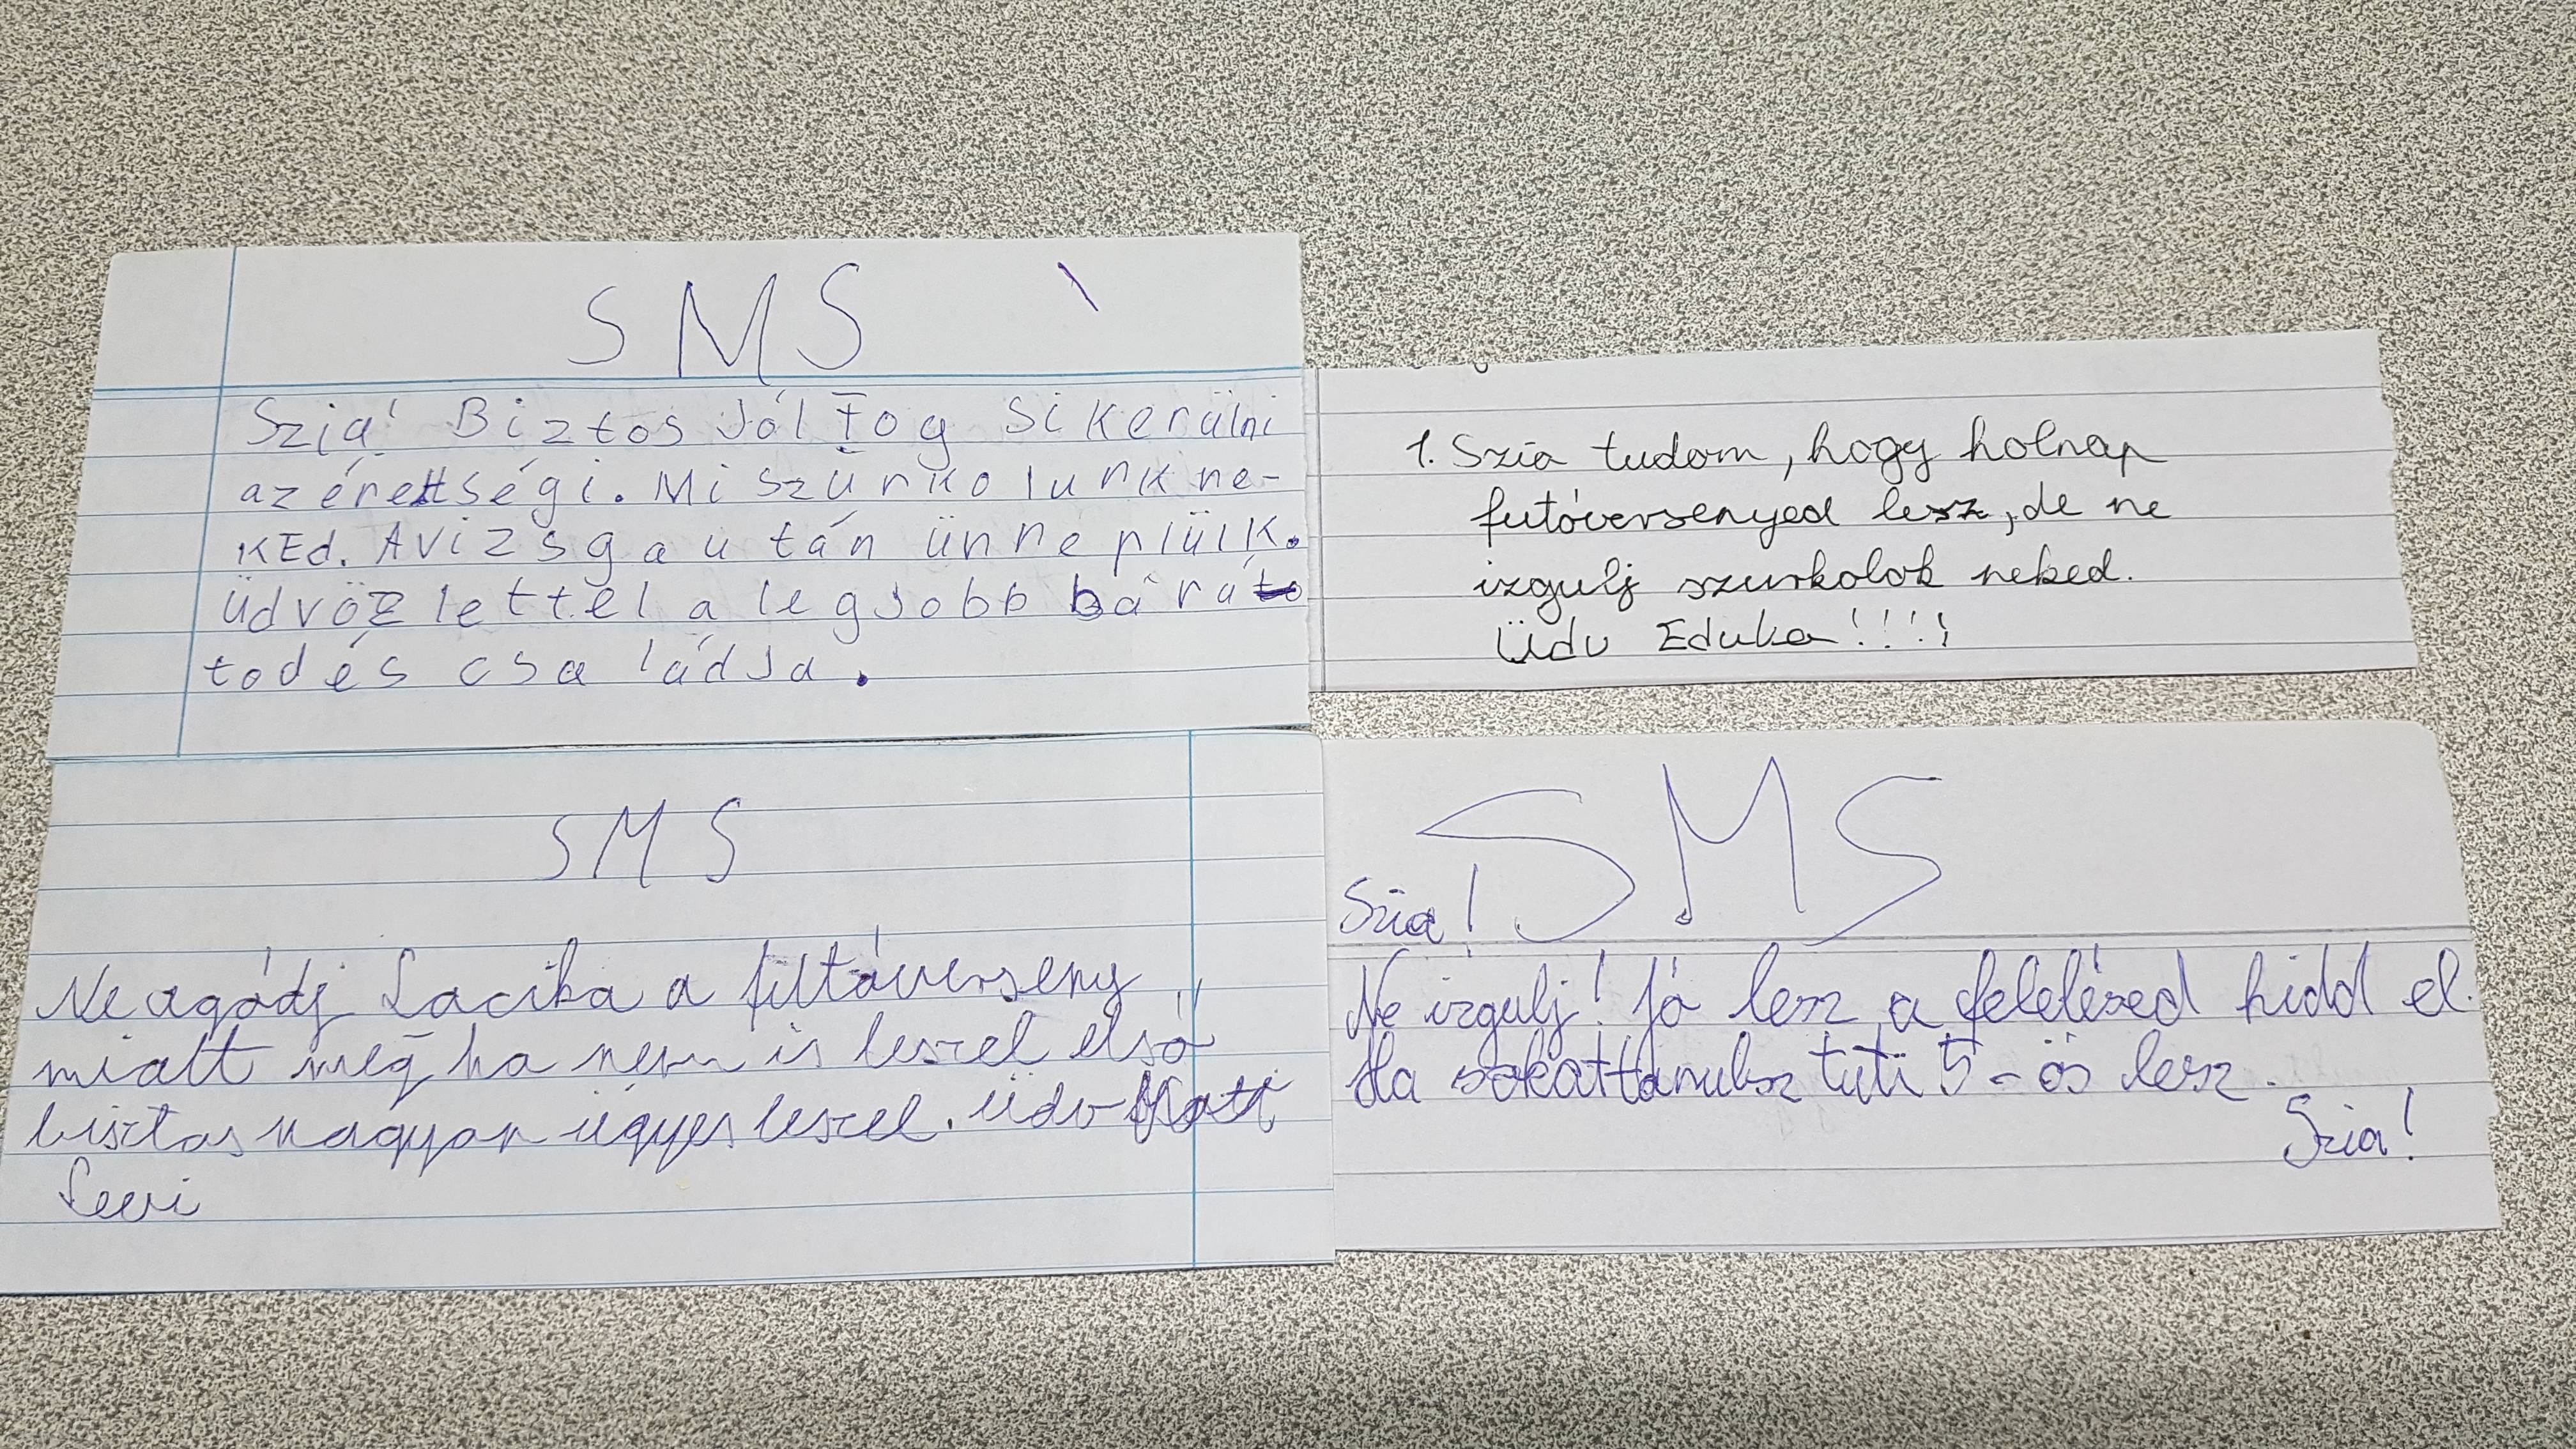 SMS
Szia! Biztos Jól Fog Sikerülni
az érettségi. Mi szúrkolunk ne-
KEd. A vizsga után ünneplülk.
üdvözlettel a legJobb bará
tod és családJa.
1. Szia tudom, hogy holnap
futóversenyed lesz, de ne
izgulj szurkolok neked.
Üdv Eduka!!!!
SMS
Ne agódj Lacika a futóverseny
miatt még ha nem is leszel első
bisztos nagyon ügyes leszel. üdv
Levi
SMS
Szia!
Ne izgulj! Jó lesz a felelésed hidd el.
Ha sokat tanulsz tuti 5-ös lesz.
Szia!